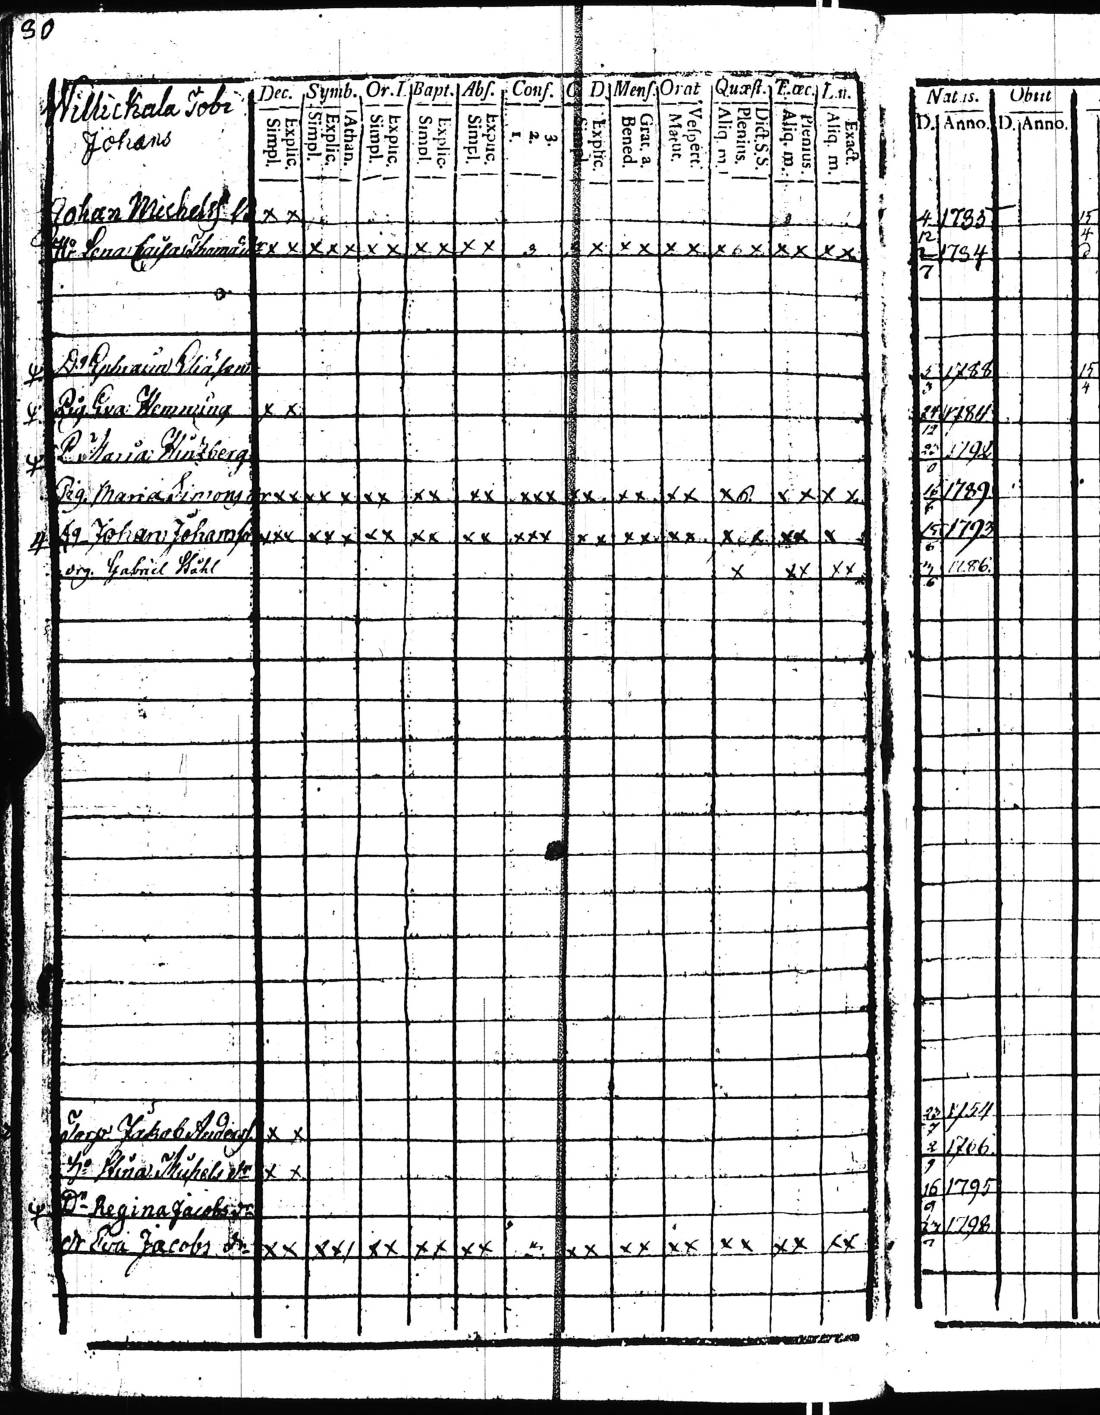 30
Willickala Tobi
Johans
Dec. Symb. Or. D. Bapt. Abs. Conf. C. D. Mens. Orat Quæst. T. œc. L. n.
Simpl. Explic. Simpl. Explic. Athan. Simpl. Explic. Simpl. Explic. Simpl. Explic. 1. 2. 3. Simpl. Explic. Bened. Grat. a. Matut. Vespert. Aliq. m. Plenius. Dict. S.S. Aliq. m. Plenius. Aliq. m. Exact.
Natus. Obiit
D. Anno. D. Anno.
Johan Michelss x x 4 12 1735 15 4
Hu Lena Caisa Thomasdr x x x x x x x x x x x x 3 x x x x x x 6 x x x x x 2 7 1734
Dg Ephraim Eliasson 5 3 1788 15 4
Pig Eva Hemming x x 24 12 1784
P. Maria Winzberg 1792
Pig. Maria Simonsdr x x x x x x x x x x x x x x x x x x x x x x 6. x x x x 16 6 1789
Dg Johan Johansson x x x x x x x x x x x x x x x x x x x x x x x x x x x 15 6 1793
Drg. Gabriel Ståhl x x x x x 6 1786
Torp Jakob Anderss. x x 23 7 1754
Hu Stina Michelsdr x x 2 9 1766
Dr Regina Jacobsdr 16 9 1795
Dr Eva Jacobs dr x x x x / x x x x x x x x x x x x x x x x x x x 27 1798